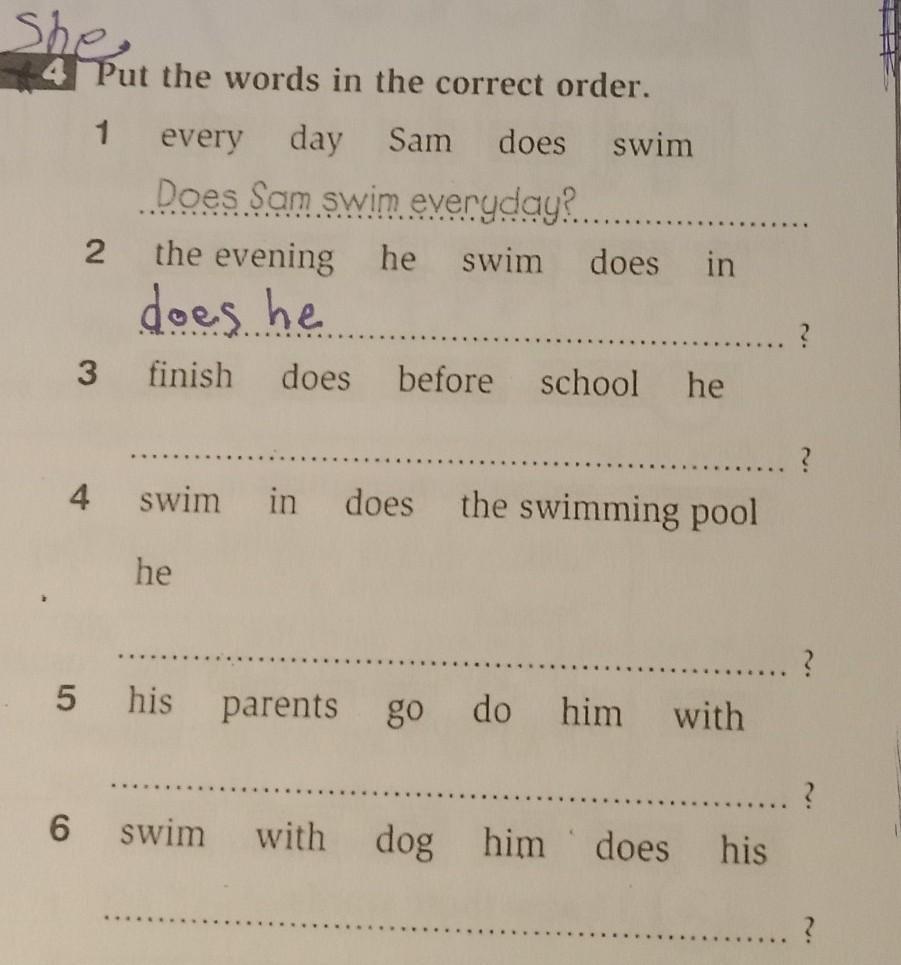 She
4 Put the words in the correct order.
1 every day Sam does swim
Does Sam swim everyday?
2 the evening he swim does in
does he ?
3 finish does before school he
?
4 swim in does the swimming pool
he
?
5 his parents go do him with
?
6 swim with dog him does his
?